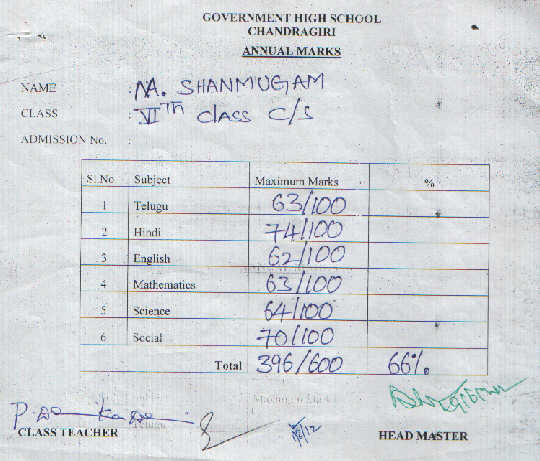 GOVERNMENT HIGH SCHOOL
CHANDRAGIRI
ANNUAL MARKS
NAME : M. SHANMUGAM
CLASS : VITH class C/S
ADMISSION No. :
S. No Subject Maximum Marks %
1 Telugu 63/100
2 Hindi 74/100
3 English 62/100
4 Mathematics 63/100
5 Science 64/100
6 Social 70/100
Total 396/600 66%
CLASS TEACHER HEAD MASTER